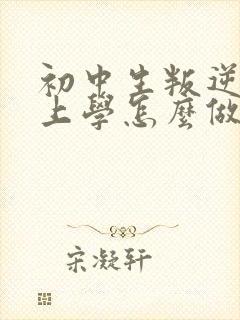 初中生叛逆
上學怎麼做
宋凝轩